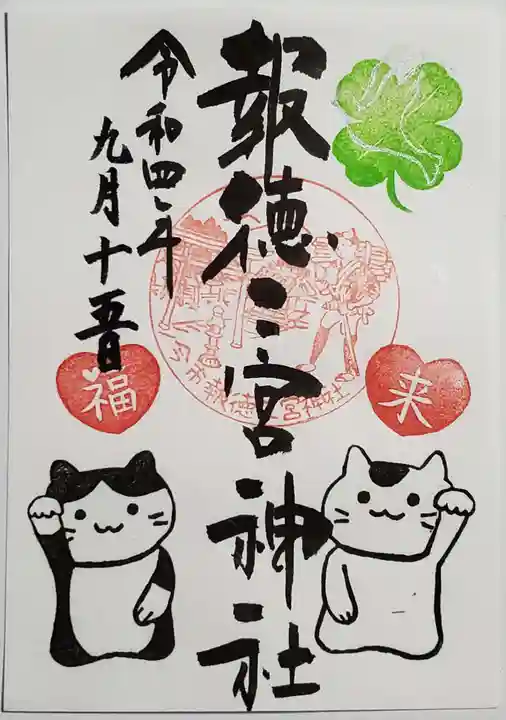 報徳二宮神社
令和四年
九月十五日
福
来
今市報徳二宮神社